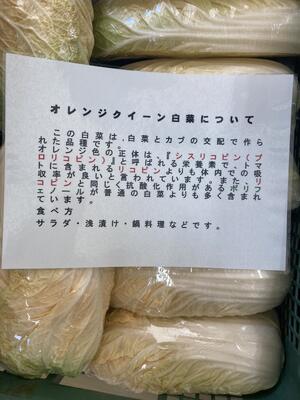 オレンジクイーン白菜について
この白菜は、白菜とカブの交配で作ら
れた品種です。
オレンジ色の正体は、『シスリコピン(プ
ロリコピン)』と呼ばれる栄養素で、トマ
トに含まれるリコピンよりも体内での吸
収率が良いと言われています。また、リ
コピンと同じく抗酸化作用があるポリフ
ェノールが普通の白菜よりも多く含まれ
ています。
食べ方
サラダ・浅漬け・鍋料理などです。